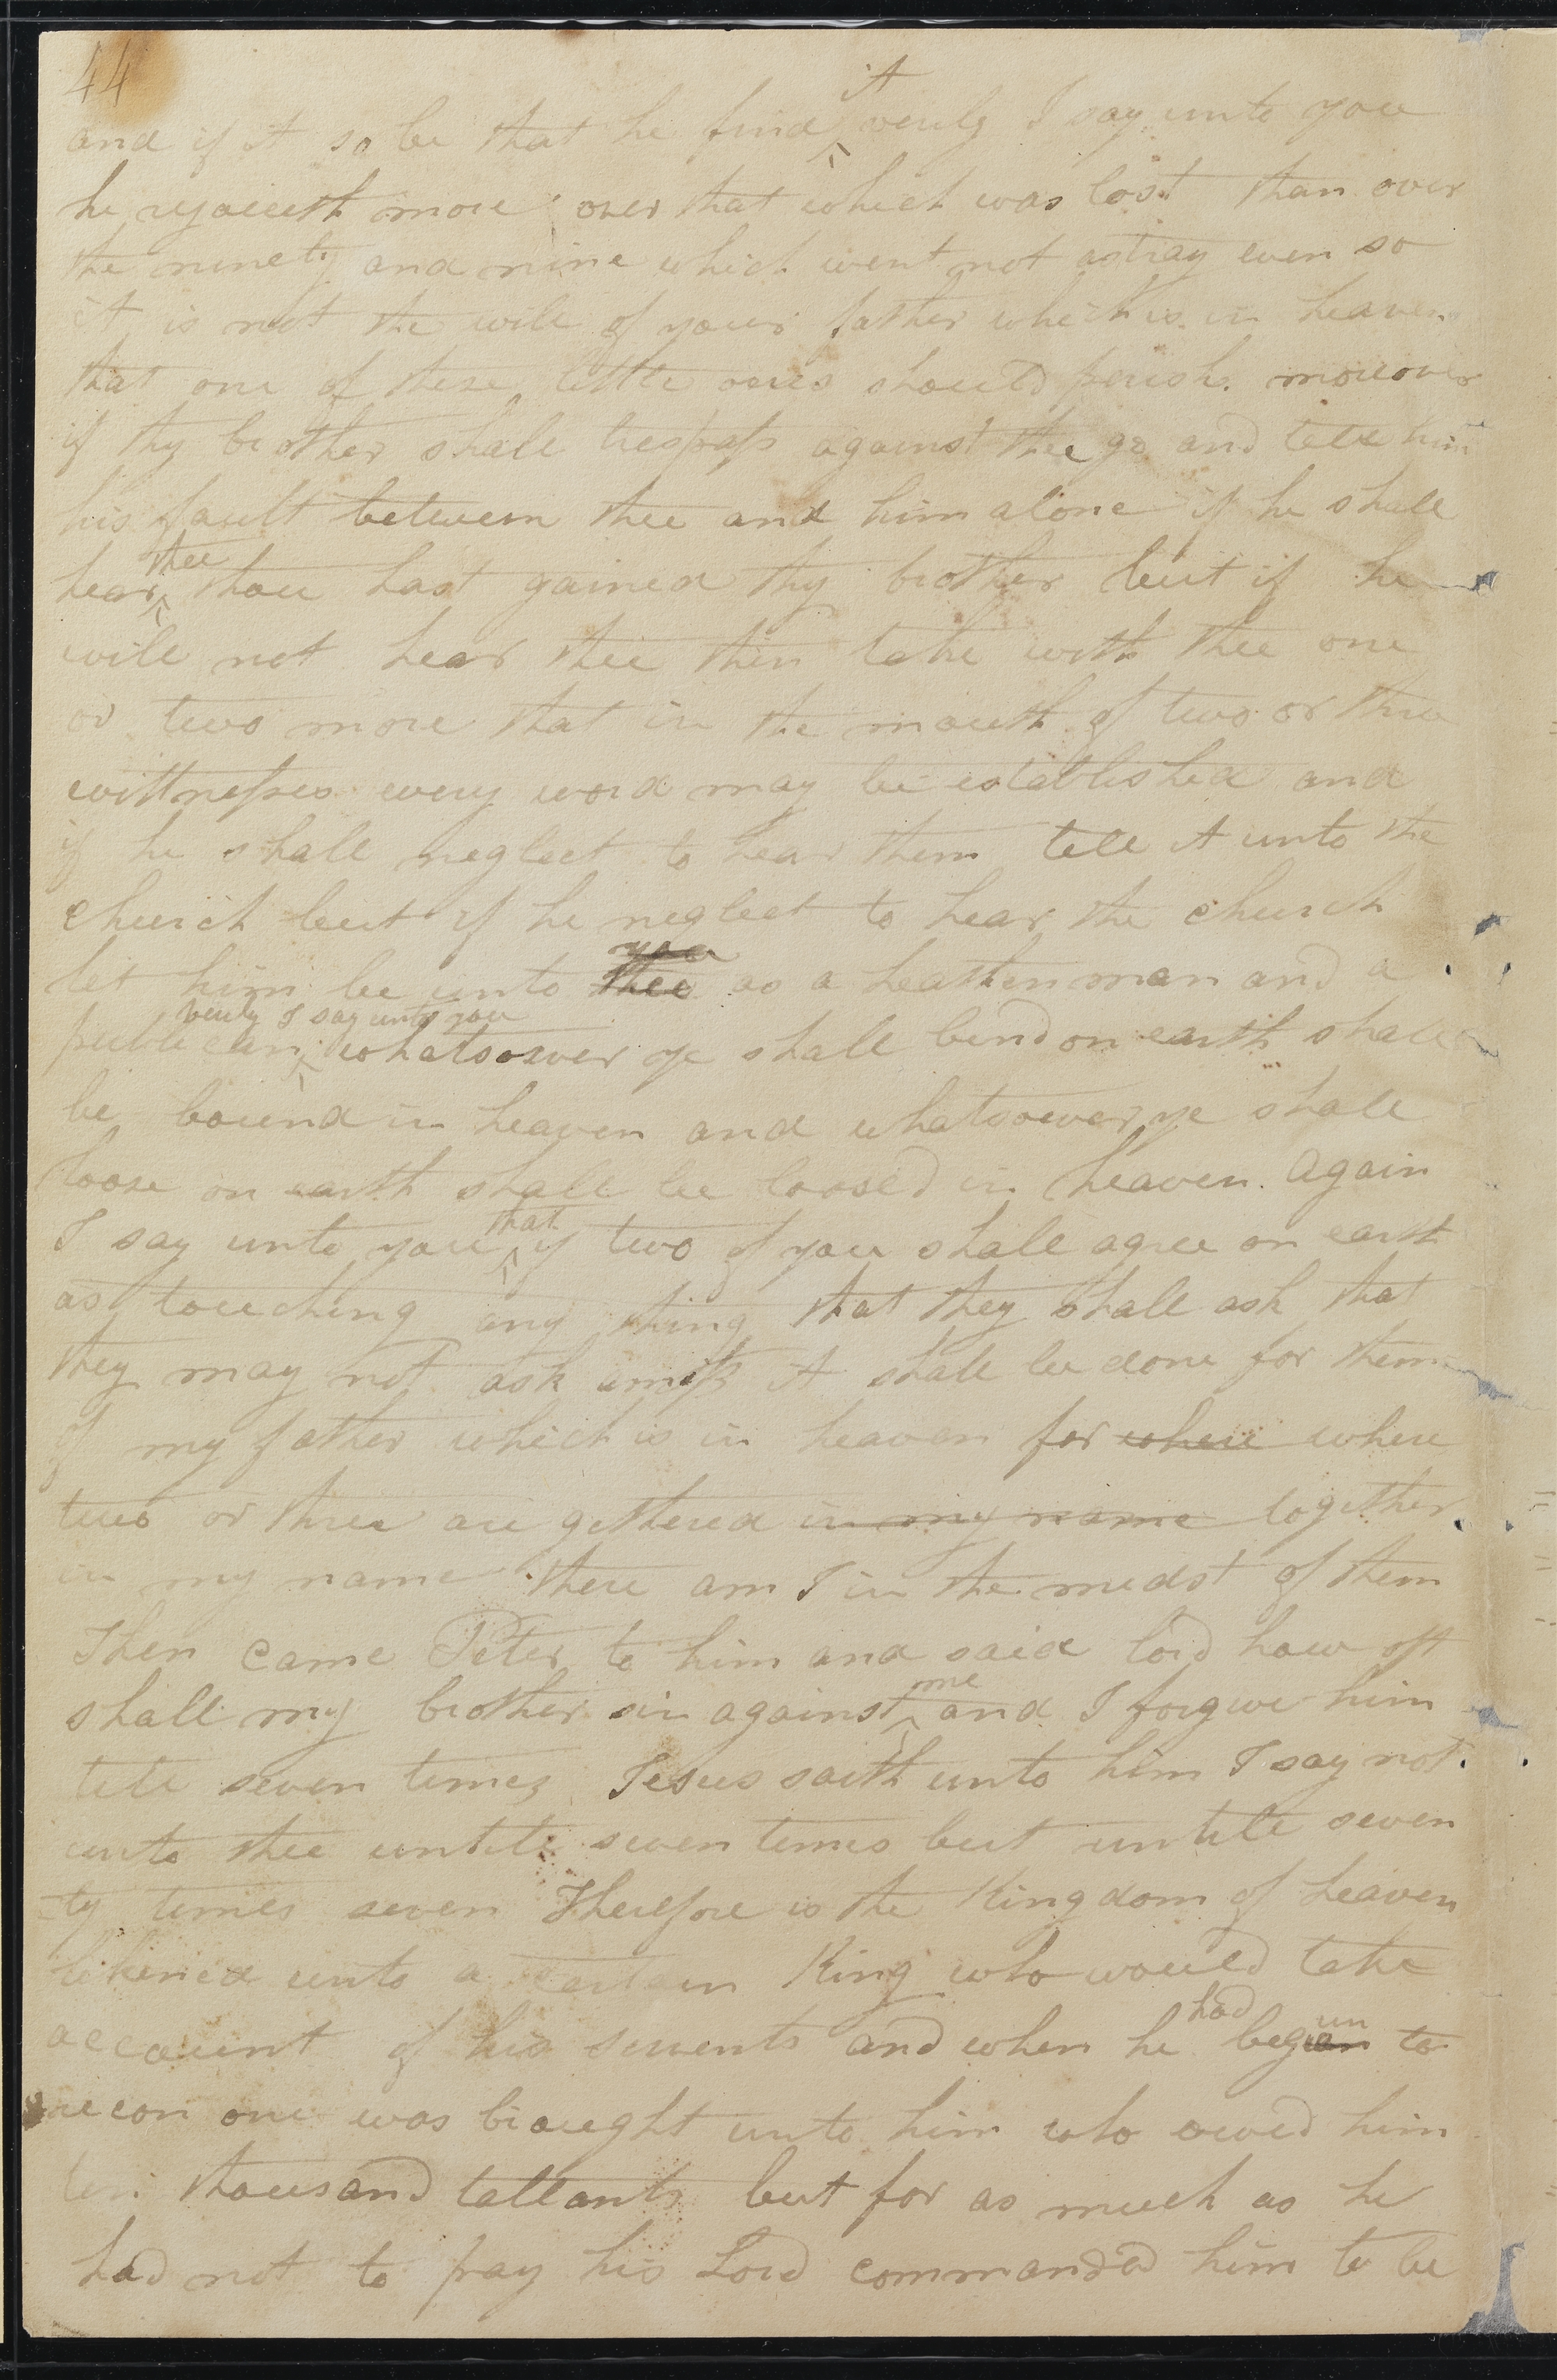 44
and if it so be that he find it verily I say unto you
he rejoiceth more over that which was lost than over
the ninety and nine which went not astray even so
it is not the will of your father which is in heaven
that one of these little ones should perish. moreover
if thy brother shall trespass against thee go and tell him
his fault between thee and him alone if he shall
hear thee thou hast gained thy brother but if he
will not hear thee then take with thee one
or two more that in the mouth of two or three
wittnesses every word may be established and
if he shall neglect to hear them tell it unto the
church but if he neglect to hear the church
let him be unto thee you as a heathen man and a
publican verily I say unto you whatsoever ye shall bind on earth shall
be bound in heaven and whatsoever ye shall
loose on earth shall be loosed in heaven. Again
I say unto you that if two of you shall agree on earth
as touching any thing that they shall ask that
they may not ask amiss it shall be done for them
of my father which is in heaven for where where
two or three are gethered in my name together
in my name there am I in the midst of them
Then came Peter to him and said lord how oft
shall my brother sin against me and I forgive him
till seven times Jesus saith unto him I say not
unto thee untill seven times but untill seven
ty times seven Therefore is the Kingdom of heaven
likened unto a certain King who would take
account of his servents and when he had began un to
recon one was brought unto him who owed him
ten thousand tallants but for as much as he
had not to pay his Lord commanded him to be